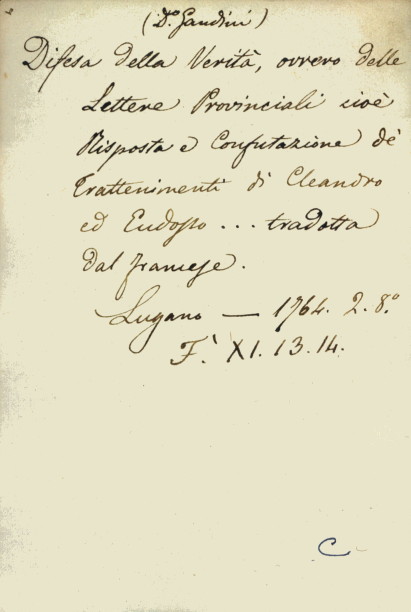 (Do Gandini)
Difesa della Verità, ovvero delle
Lettere Provinciali cioè
Risposta e Confutazione de'
Trattenimenti di Cleandro
ed Eudosso ... tradotta
dal francese.
Lugano — 1764. 2. 8.o
F. XI. 13. 14.
C